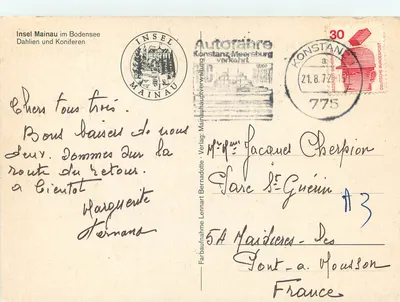 Insel Mainau im Bodensee
Dahlien und Koniferen
INSEL
MAINAU
Autofähre
Konstanz-Meersburg
verkehrt
KONSTANZ
21.8.72-15
775
30
DEUTSCHE BUNDESPOST
Chers tous trois.
Bons baisers de nous
deux. Sommes sur la
route du retour.
a bientot
Marguerite
Fernand
Farbaufnahme Lennart Bernadotte · Verlag: Mainauhauptverwaltung
Mr Mme Jacques Cherpion
Parc St Guérin
A3
5A Maidieres-les
Pont-a-Mousson
France